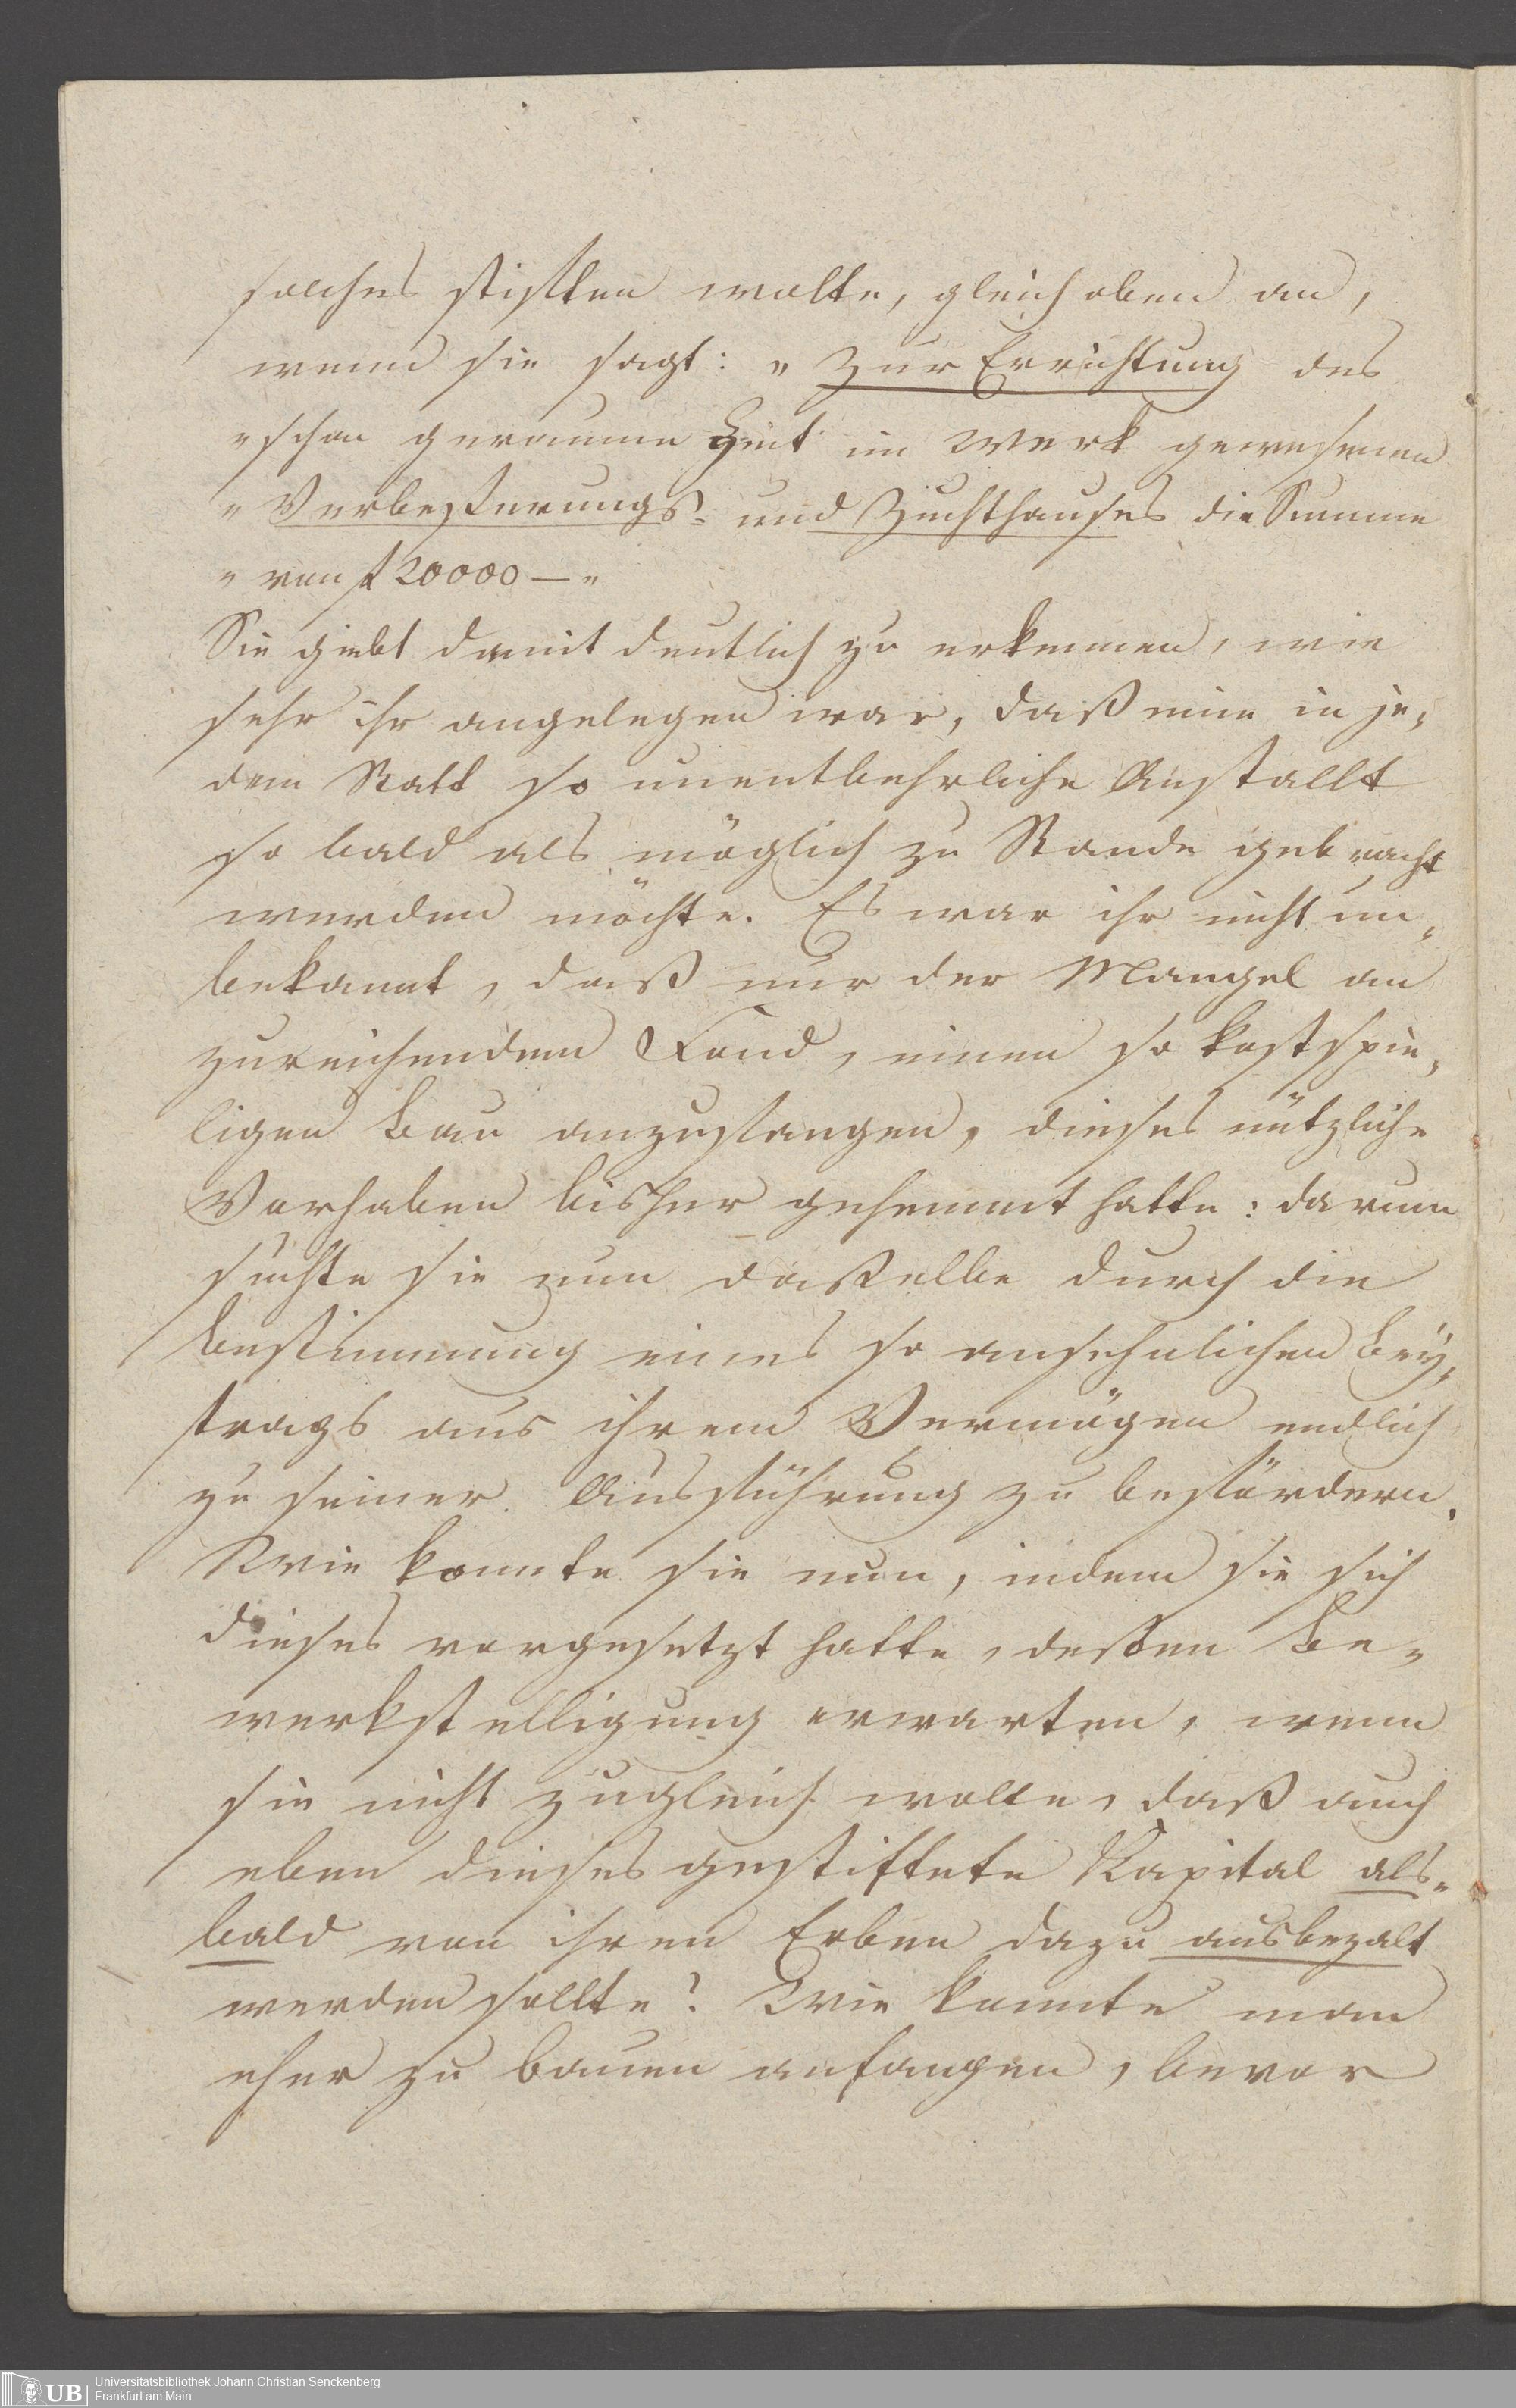 solches stiften wolte, gleich oben an,
wenn sie sagt: „Zur Errichtung des
„schon geraume Zeit im Werk gewesenen
„Verbeßerungs- und Zuchthauses die Summe
„von f 20000 — „
Sie giebt damit deutlich zu erkennen, wie
sehr ihr angelegen war, daß eine in je-
dem Statt so unentbehrliche Anstallt
so bald als möglich zu Stande gebracht
werden möchte. Es war ihr nicht un-
bekannt, daß nur der Mangel an
zureichendem Fond, einen so kostspie-
ligen Bau anzufangen, dieses nützliche
Vorhaben bisher gehemmt hatte: darum
suchte sie nun daßelbe durch die
Bestimmung eines so ansehnlichen Bey-
trags aus ihrem Vermögen endlich
zu seiner Ausführung zu befördern.
Wie konnte sie nun, indem sie sich
dieses vorgesetzt hatte, deßen Be-
werkstelligung erwarten, wenn
sie nicht zugleich wolte, daß auch
eben dieses gestiftete Kapital als-
bald von ihren Erben dazu ausbezalt
werden sollte? Wie konnte man
eher zu bauen anfangen, bevor
UB Universitätsbibliothek Johann Christian Senckenberg
Frankfurt am Main